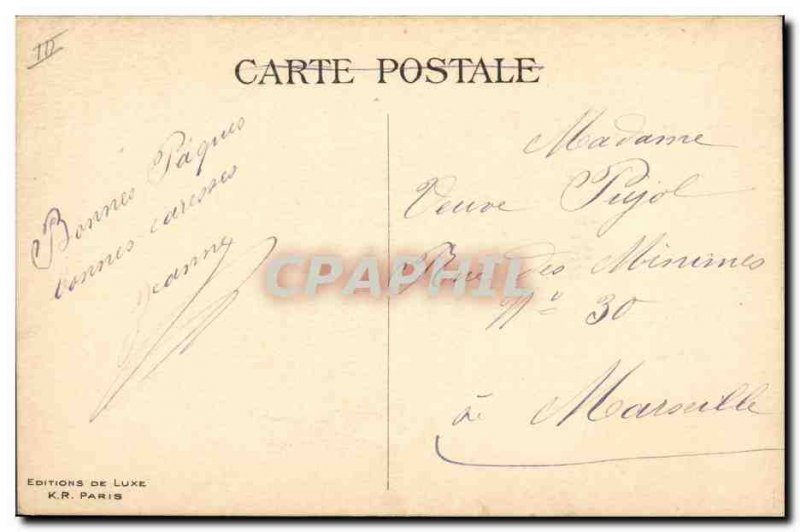 III
CARTE POSTALE
Bonnes Pâques
bonnes caresses
Jeanne
Madame
Veuve Pujol
Rue des Minimes
N° 30
à Marseille
CPAPHIL
EDITIONS DE LUXE
K.R. PARIS